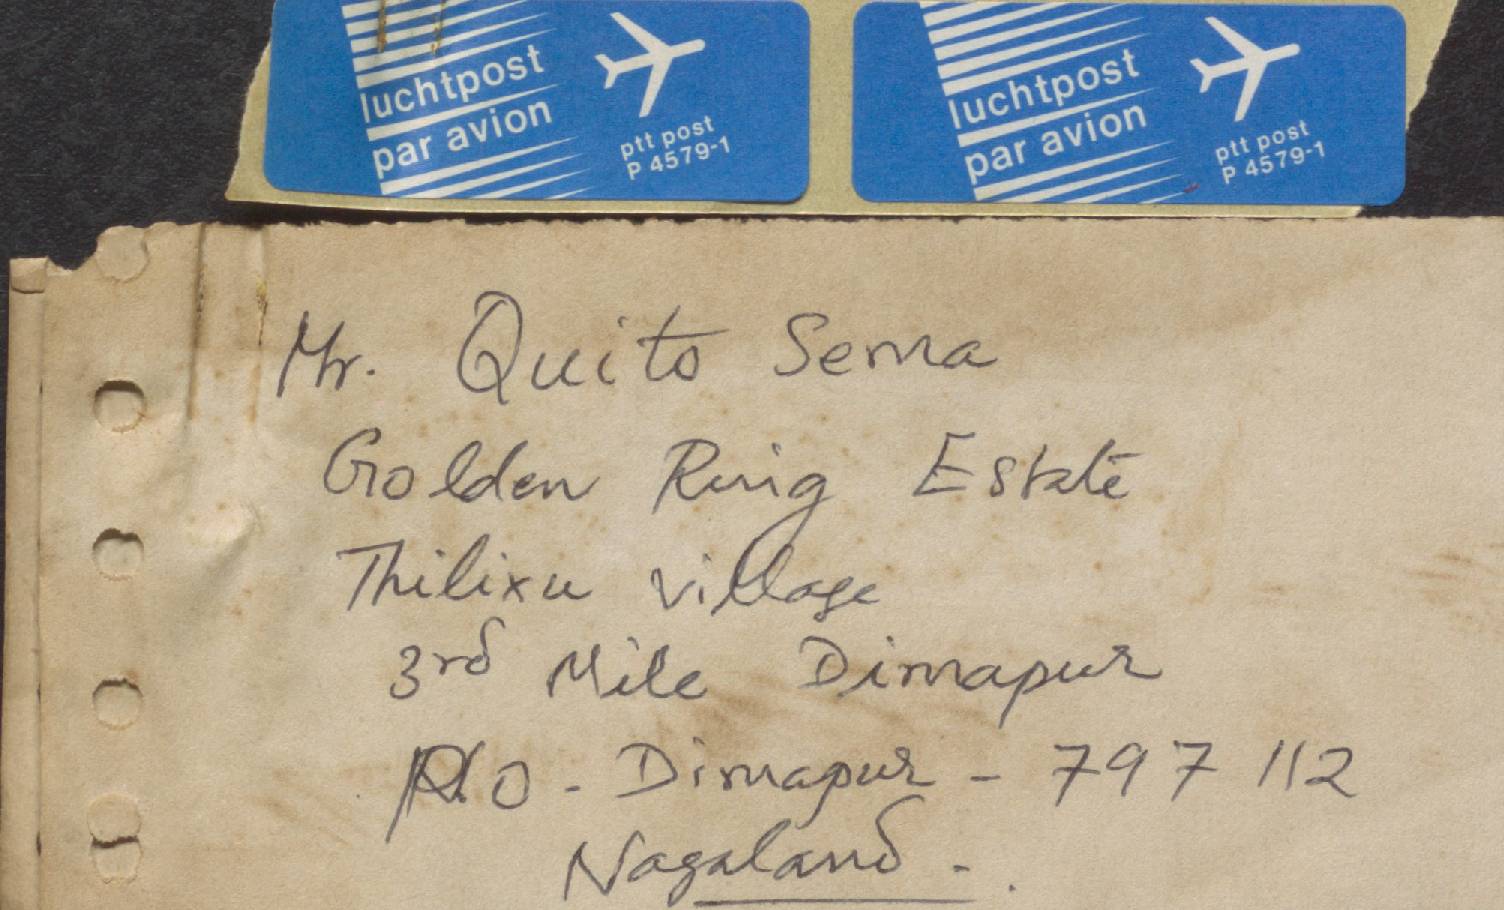 luchtpost
par avion
ptt post
P 4579-1
luchtpost
par avion
ptt post
P 4579-1
Mr. Quito Sema
Golden Ring Estate
Thilixu village
3rd Mile Dimapur
P.O - Dimapur - 797 112
Nagaland - .